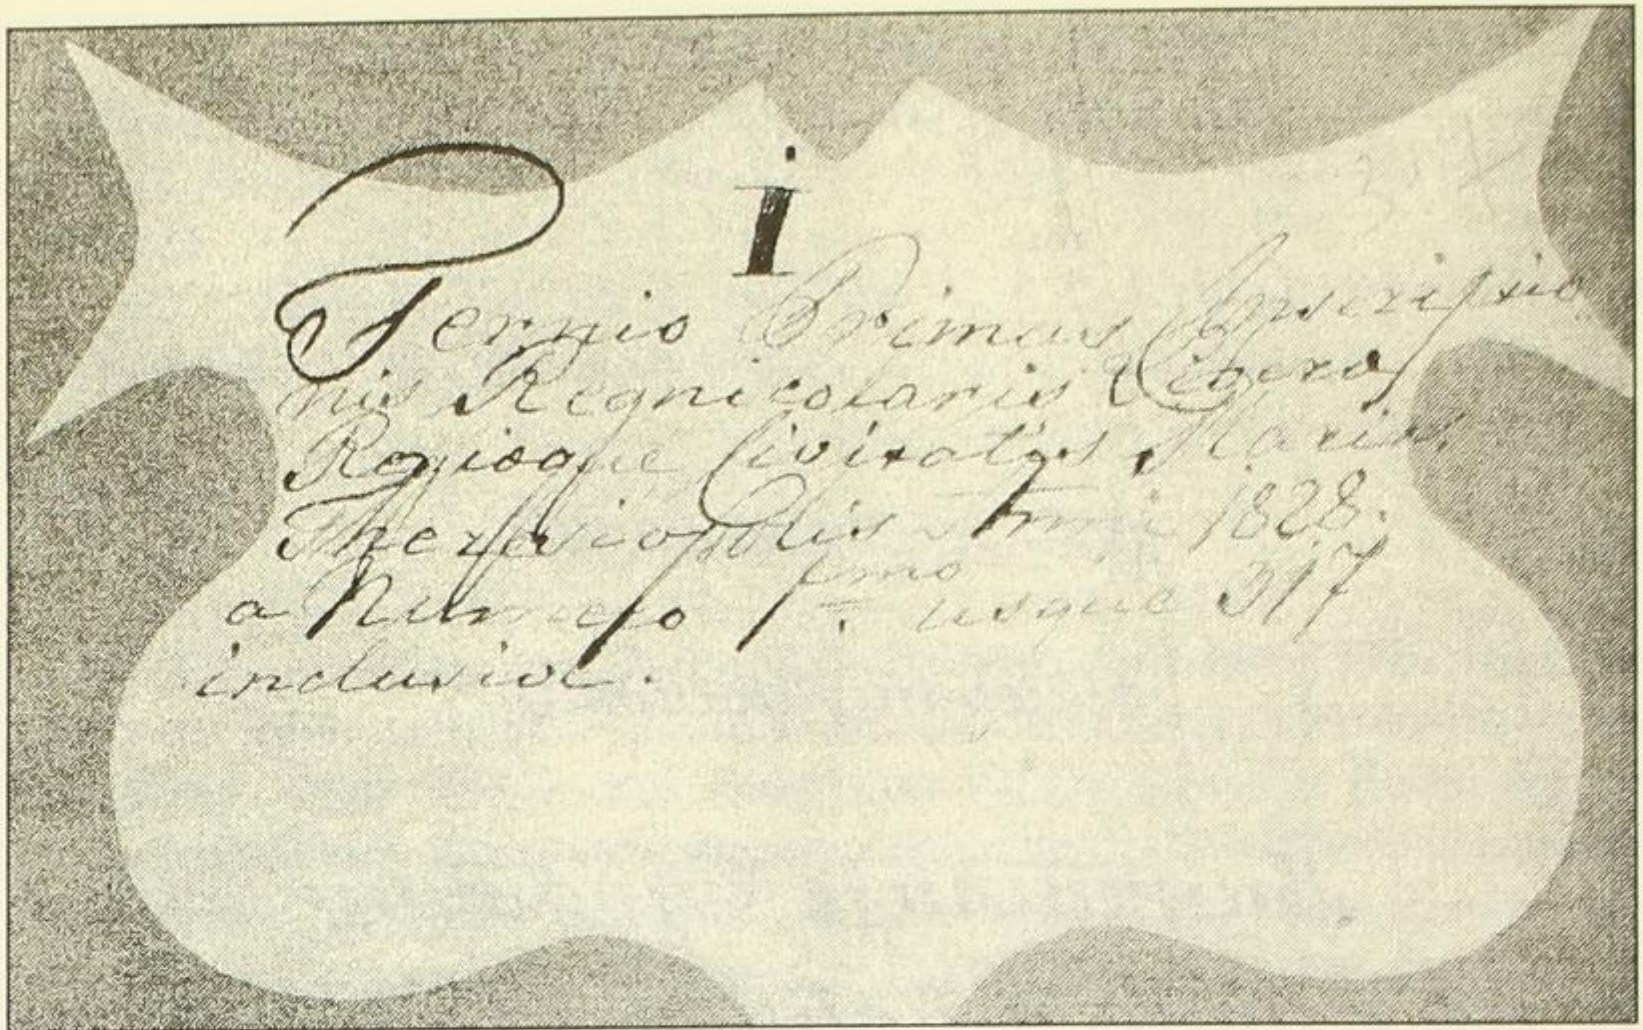 i
Ternio Primus Inscriptio
nis Regnicolaris Liberae
Regiaeque Civitatis Maria
Theresiopolis Anni 1828.
a Numero 1mo usque 317
inclusive.